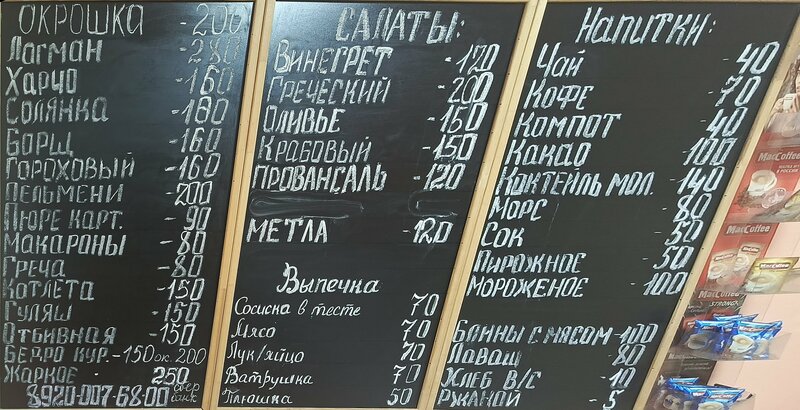 ОКРОШКА - 200
Лагман - 280
Харчо - 160
Солянка - 180
Борщ - 160
Гороховый - 160
Пельмени 200
Пюре карт. - 90
Макароны - 80
Греча - 80
Котлета - 150
Гуляш - 150
Отбивная - 150
Бедро кур. - 150 ок. 200
Жаркое 250
8920-007-68-00 Сбер банк
САЛАТЫ:
Винегрет - 120
Греческий - 200
Оливье - 150
Крабовый - 150
Провансаль - 120
МЕТЛА - 120
Выпечка
Сосиска в тесте 70
Мясо 70
Лук/яйцо 70
Ватрушка 70
Плюшка 50
Напитки:
Чай - 40
Кофе - 70
Компот - 40
Какао 100
Коктейль мол. - 140
Морс - 80
Сок - 50
Пирожное - 50
Мороженое - 100
Блины с мясом - 100
Лаваш 80
Хлеб в/с - 10
Ржаной - 5
MacCoffee
MacCoffee
MacCoffee
STRONG